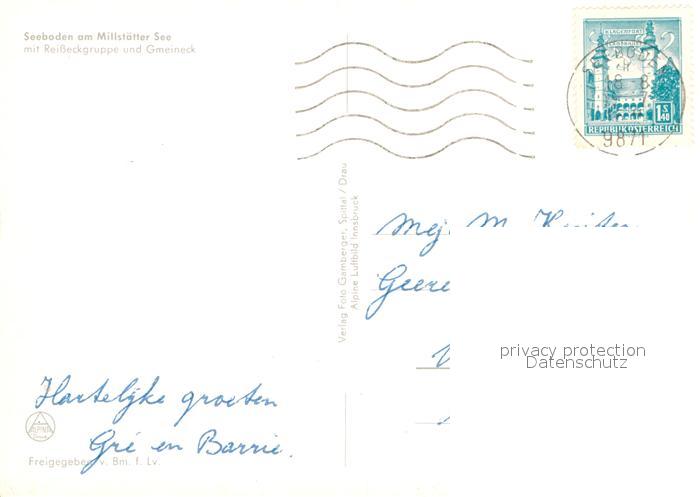 Seeboden am Millstätter See
mit Reißeckgruppe und Gmeineck
KLAGENFURT
2
1S40
REPUBLIK ÖSTERREICH
9871
Verlag Foto Gamberger, Spittal / Drau
Alpine Luftbild Innsbruck
Mej. M.
Geere
privacy protection
Datenschutz
Hartelijke groeten
Gré en Barrie.
ALPINE
Freigegeben v. Bm. f. Lv.